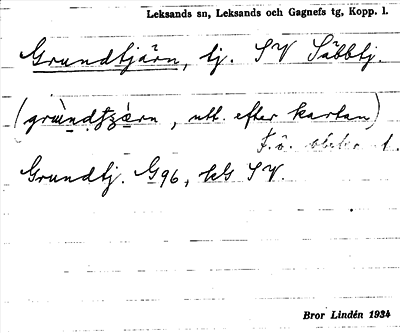 Leksands sn, Leksands och Gagnefs tg, Kopp. l.
Grundtjärn, tj. SV Säbbtj.
(grùndțȥæ̀rn, utt. efter kartan)
Grundtj. G96, kls SV.
Bror Lindén 1934